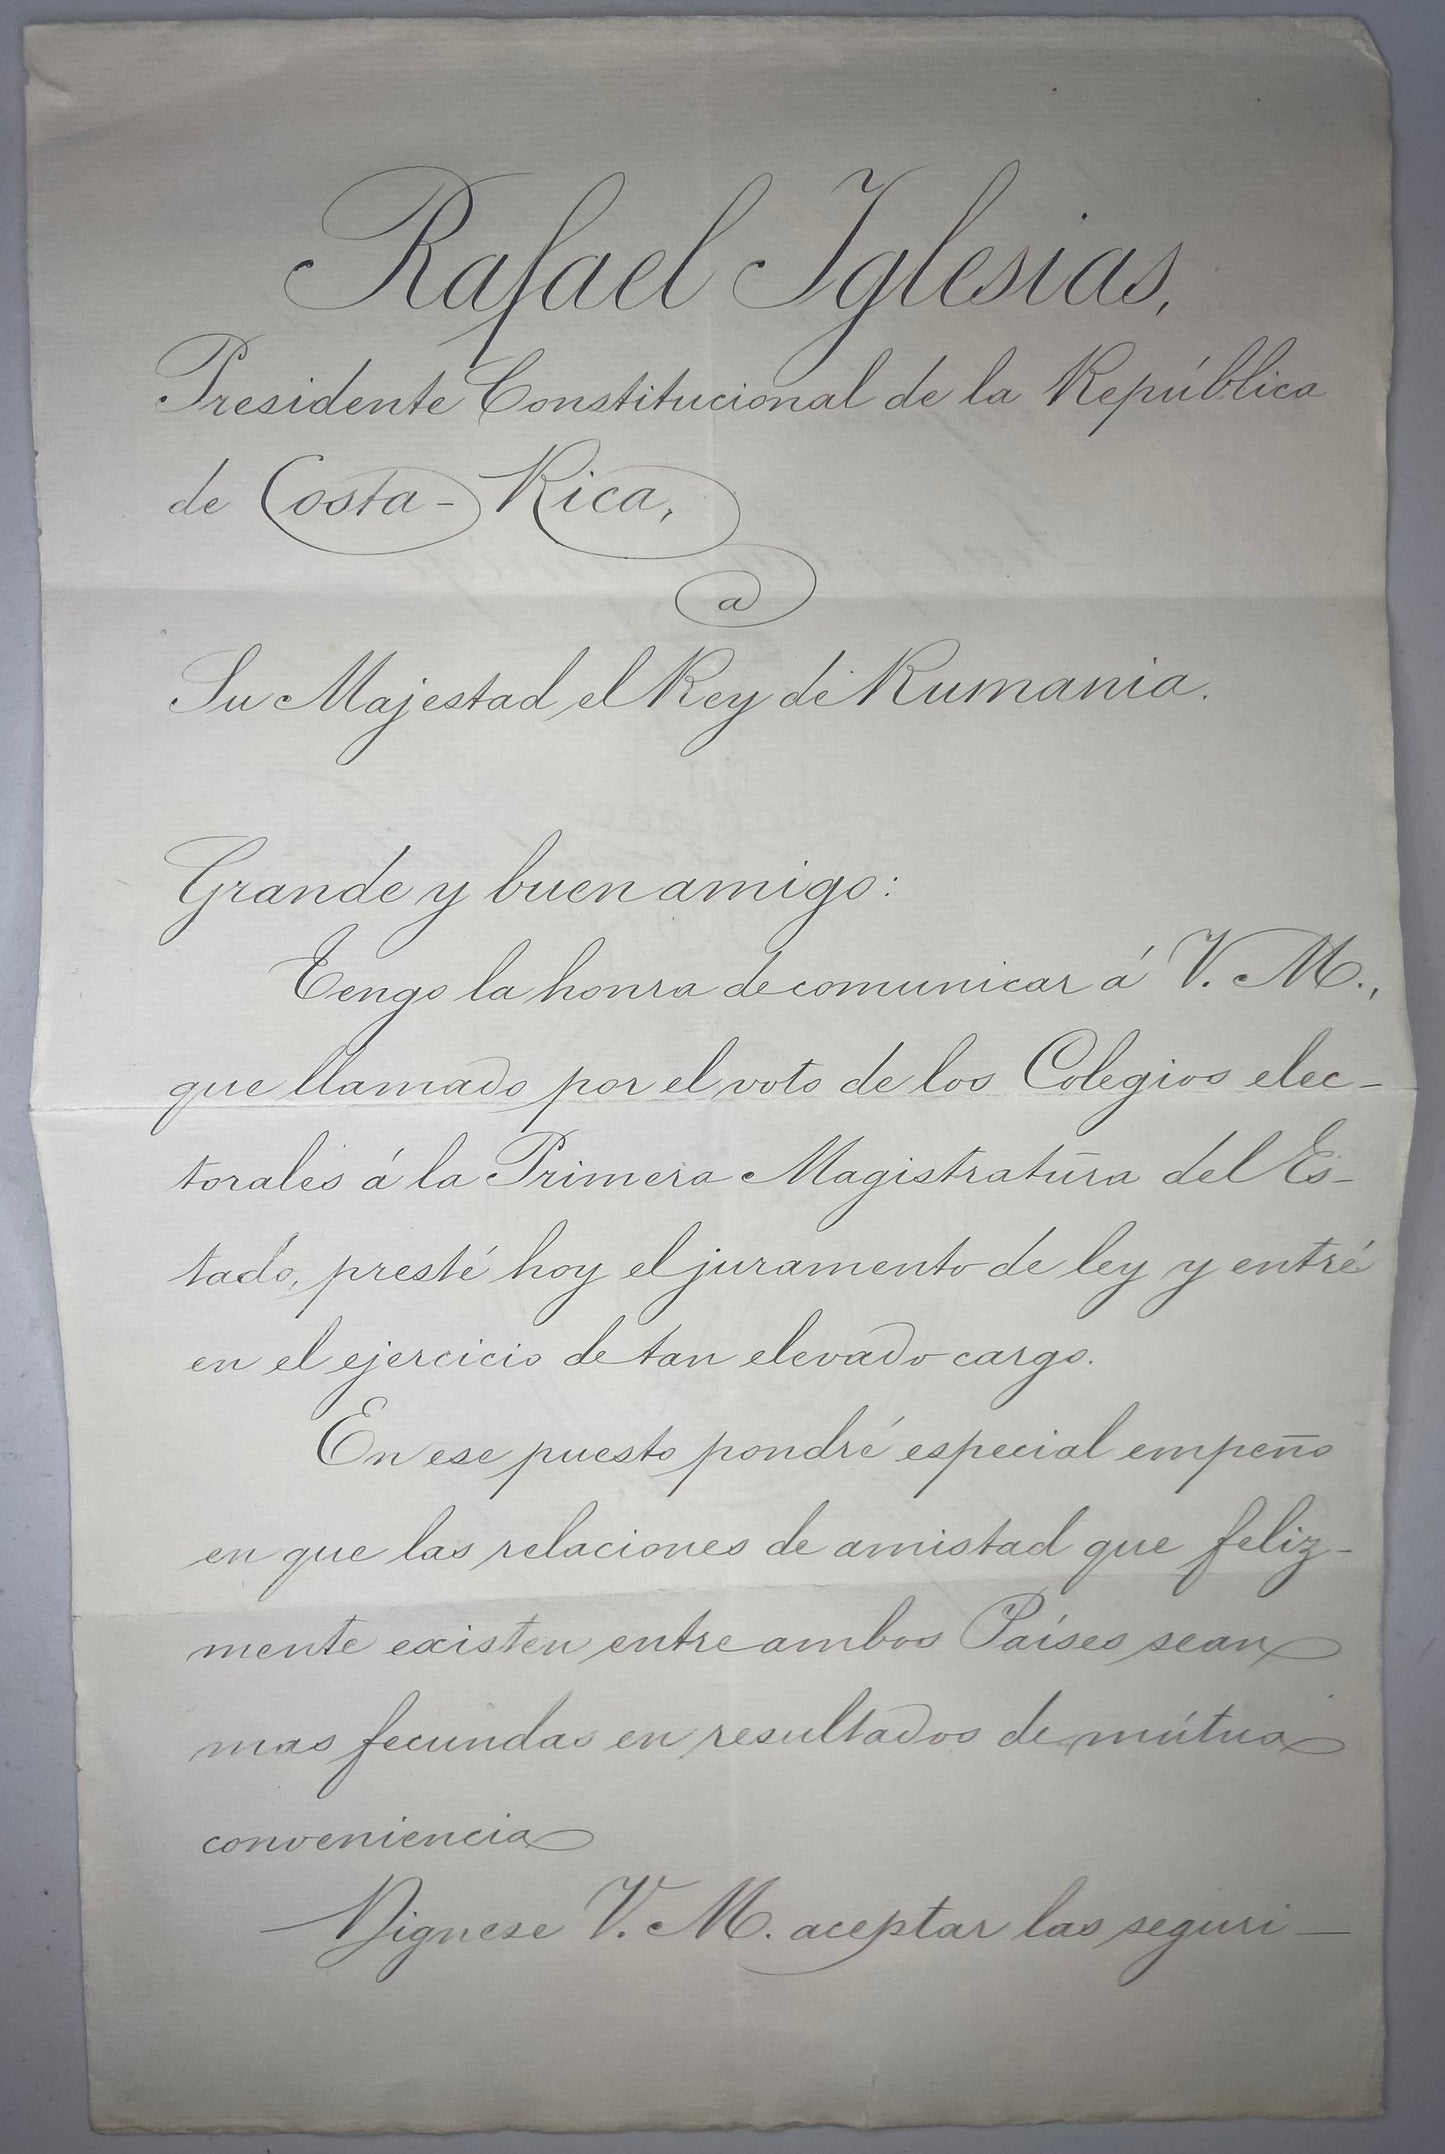 Rafael Iglesias,
Presidente Constitucional de la República
de Costa-Rica,
a
Su Majestad el Rey de Rumania.
Grande y buen amigo:
Tengo la honra de comunicar á V. M.,
que llamado por el voto de los Colegios elec-
torales á la Primera Magistratura del Es-
tado, presté hoy el juramento de ley y entré
en el ejercicio de tan elevado cargo.
En ese puesto pondré especial empeño
en que las relaciones de amistad que feliz-
mente existen entre ambos Países sean
mas fecundas en resultados de mútua
conveniencia
Dignese V. M. aceptar las seguri-